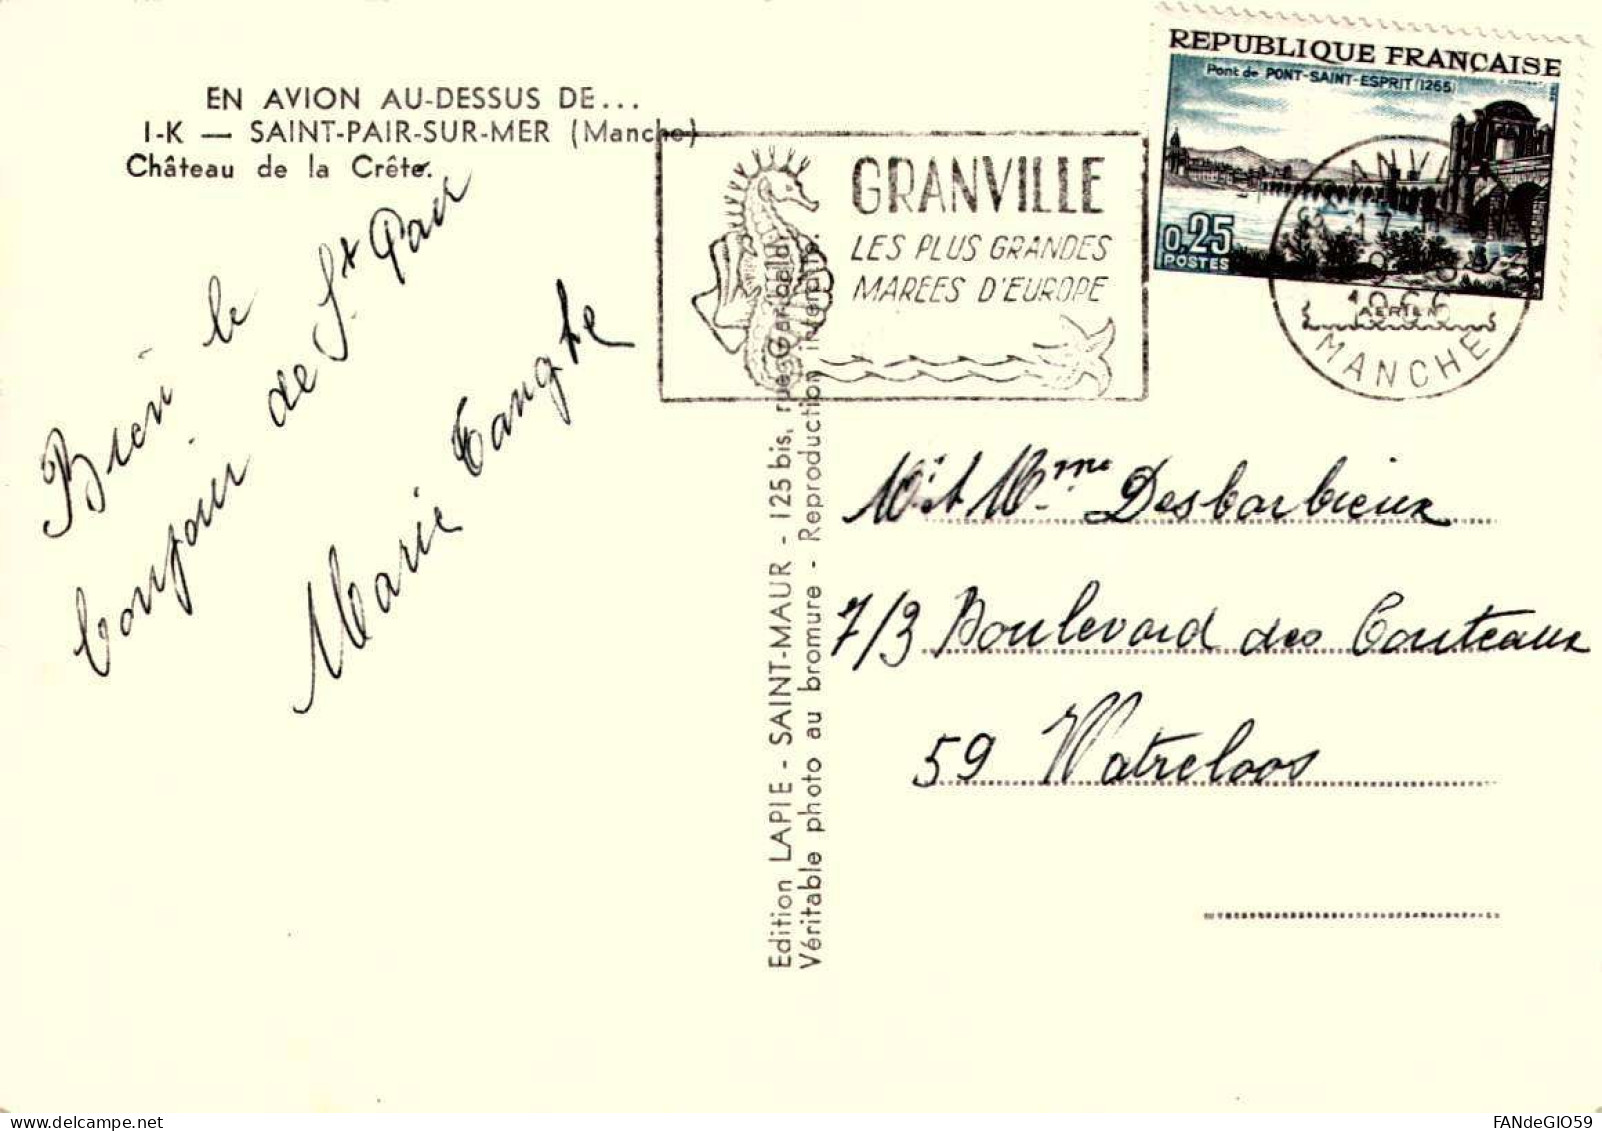 EN AVION AU-DESSUS DE...
I-K — SAINT-PAIR-SUR-MER (Manche)
Château de la Crête.
Bien le
bonjour de St Pair
Marie Tanghe
Edition LAPIE - SAINT-MAUR - 125 bis, rue Garibaldi
Véritable photo au bromure - Reproduction interdite.
GRANVILLE
LES PLUS GRANDES
MARÉES D'EUROPE
REPUBLIQUE FRANÇAISE
Pont de PONT-SAINT-ESPRIT (1265)
0,25
POSTES
GRANVILLE
17 H
1966
MANCHE
Mr et Mme Desbarbieux
7/3 Boulevard des Couteaux
59 Watreloos
FANdeGIO59